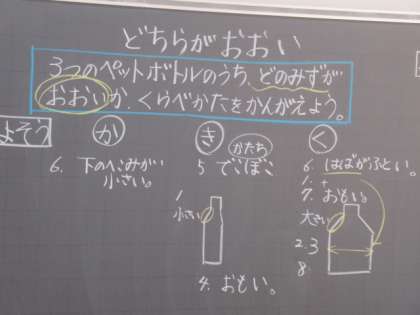 どちらがおおい
3つのペットボトルのうち、どのみずが
おおいか、くらべかたをかんがえよう。
よそう
か
き
かたち
く
6. 下のへこみがい
小さい。
5 でこぼこ
6. はばがふとい。
1. +
7. おもい。
1
小さい
大きい
2.3
8
4. おもい。